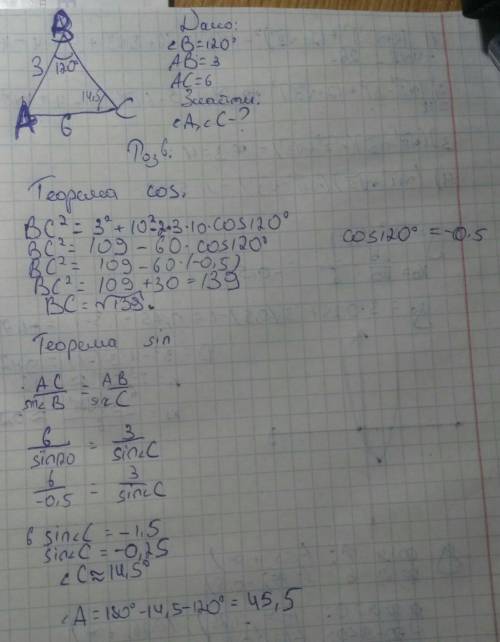 B
Дано:
∠B=120°
3
120°
AB=3
AC=6
14,5
A
C
Знайти:
∠A, ∠C-?
6
Розв.
Теорема cos.
BC² = 3² + 10² - 2·3·10·cos120°
BC² = 109 - 60·cos120°
cos120° = -0.5
BC² = 109 - 60·(-0,5)
BC² = 109 + 30 = 139
BC = √139.
Теорема sin
AC/sin∠B = AB/sin∠C
6/sin120 = 3/sin∠C
6/-0,5 = 3/sin∠C
6 sin∠C = -1,5
sin∠C = -0,25
∠C ≈ 14,5°
∠A = 180° - 14,5 - 120° = 45,5